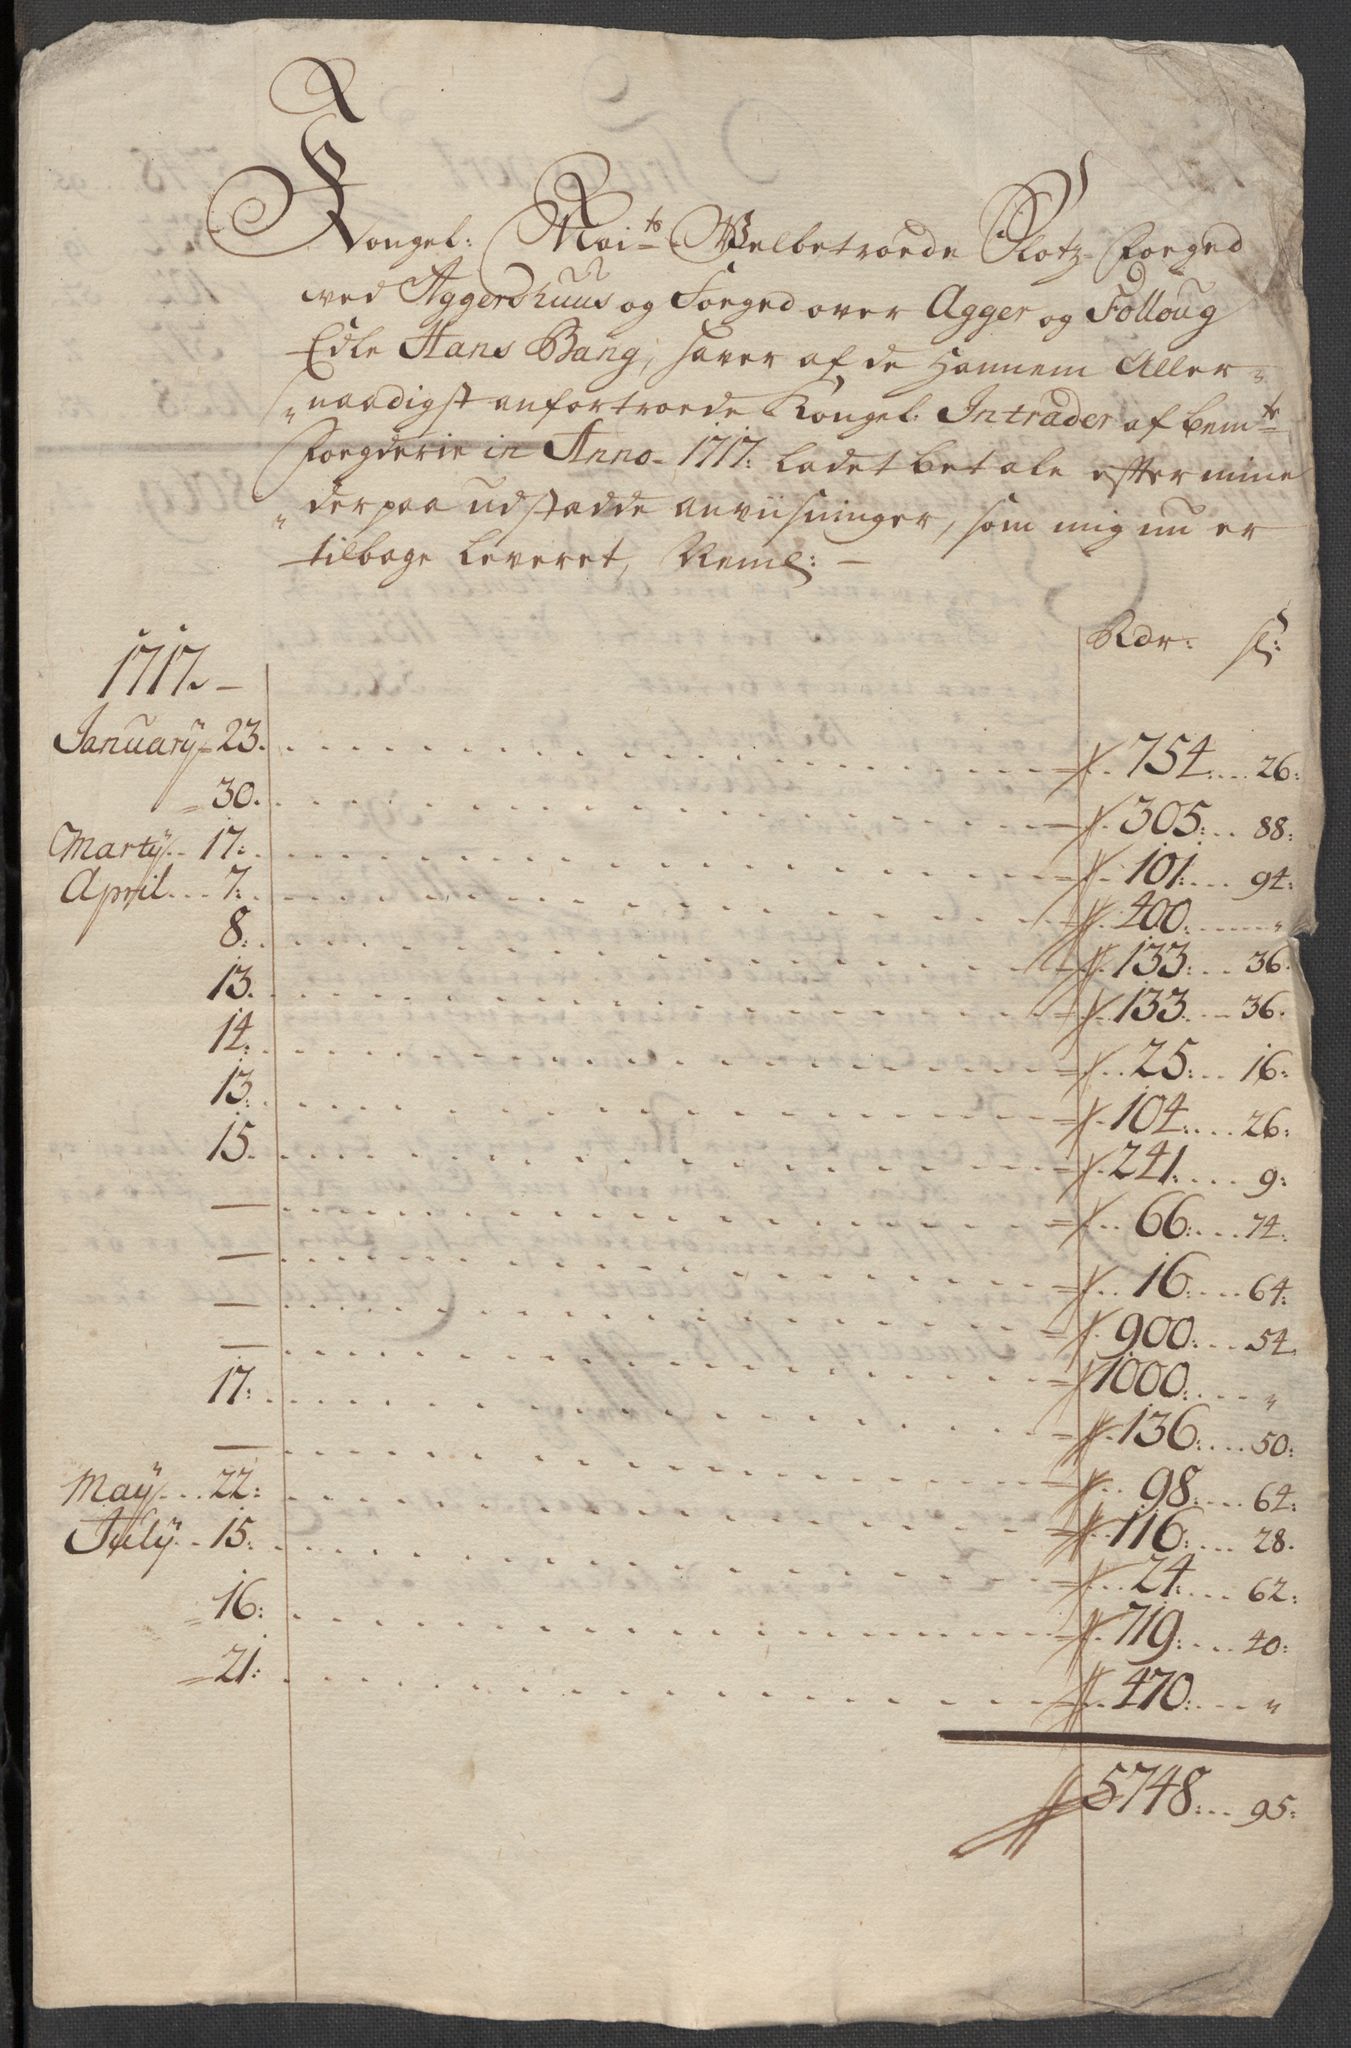 Kongel: Maitz Velbetroede Slotz-Foeged
ved Aggershuus og Foeged over Agger og Folloug
Edle Hans Bang, haver af de hannem Aller-
naadigst anfortroede Kongel: Intrader af bemte
Foegderie in Anno 1717: ladet betale efter mine
derpaa udstædde anviisninger, som mig nu er
tilbage leveret, Neml: -
Rdr: sl:
1717. -
January 23. 754: 26:
30. 305: 88:
Marty 17: 101: 94:
April 7: 400: "
8: 133: 36.
13. 133. 36.
14: 25: 16:
13: 104: 26:
15. 241: 9:
— 66: 74:
— 16: 64:
— 900: 54.
— 1000: "
17: 136: 50:
— 98: 64:
May 22: 116: 28.
July 15: 24: 62:
16: 719: 40:
21: 470: "
5748: 95: